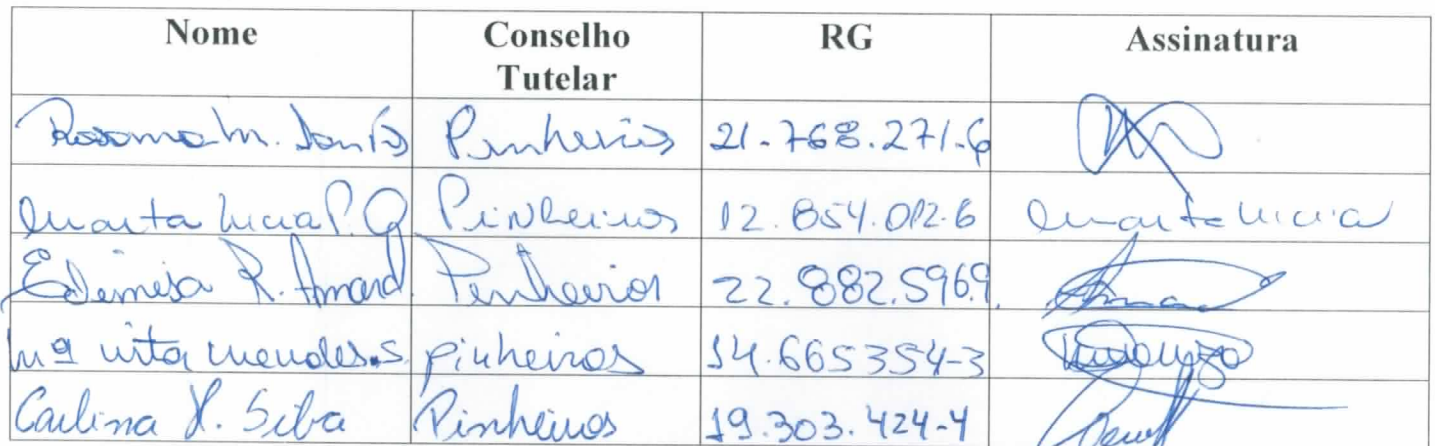 Nome Conselho Tutelar RG Assinatura
Rosama M. Santos Pinheiros 21.768.271-6
Marta Lucia P. G Pinheiros 12.854.012-6 Marta Lucia
Edimisa R. Amaral Pinheiros 22.882.5969
Mª vita mendes.s. pinheiros 14.665354-3
Carlina X. Silva Pinheiros 19.303.424-4